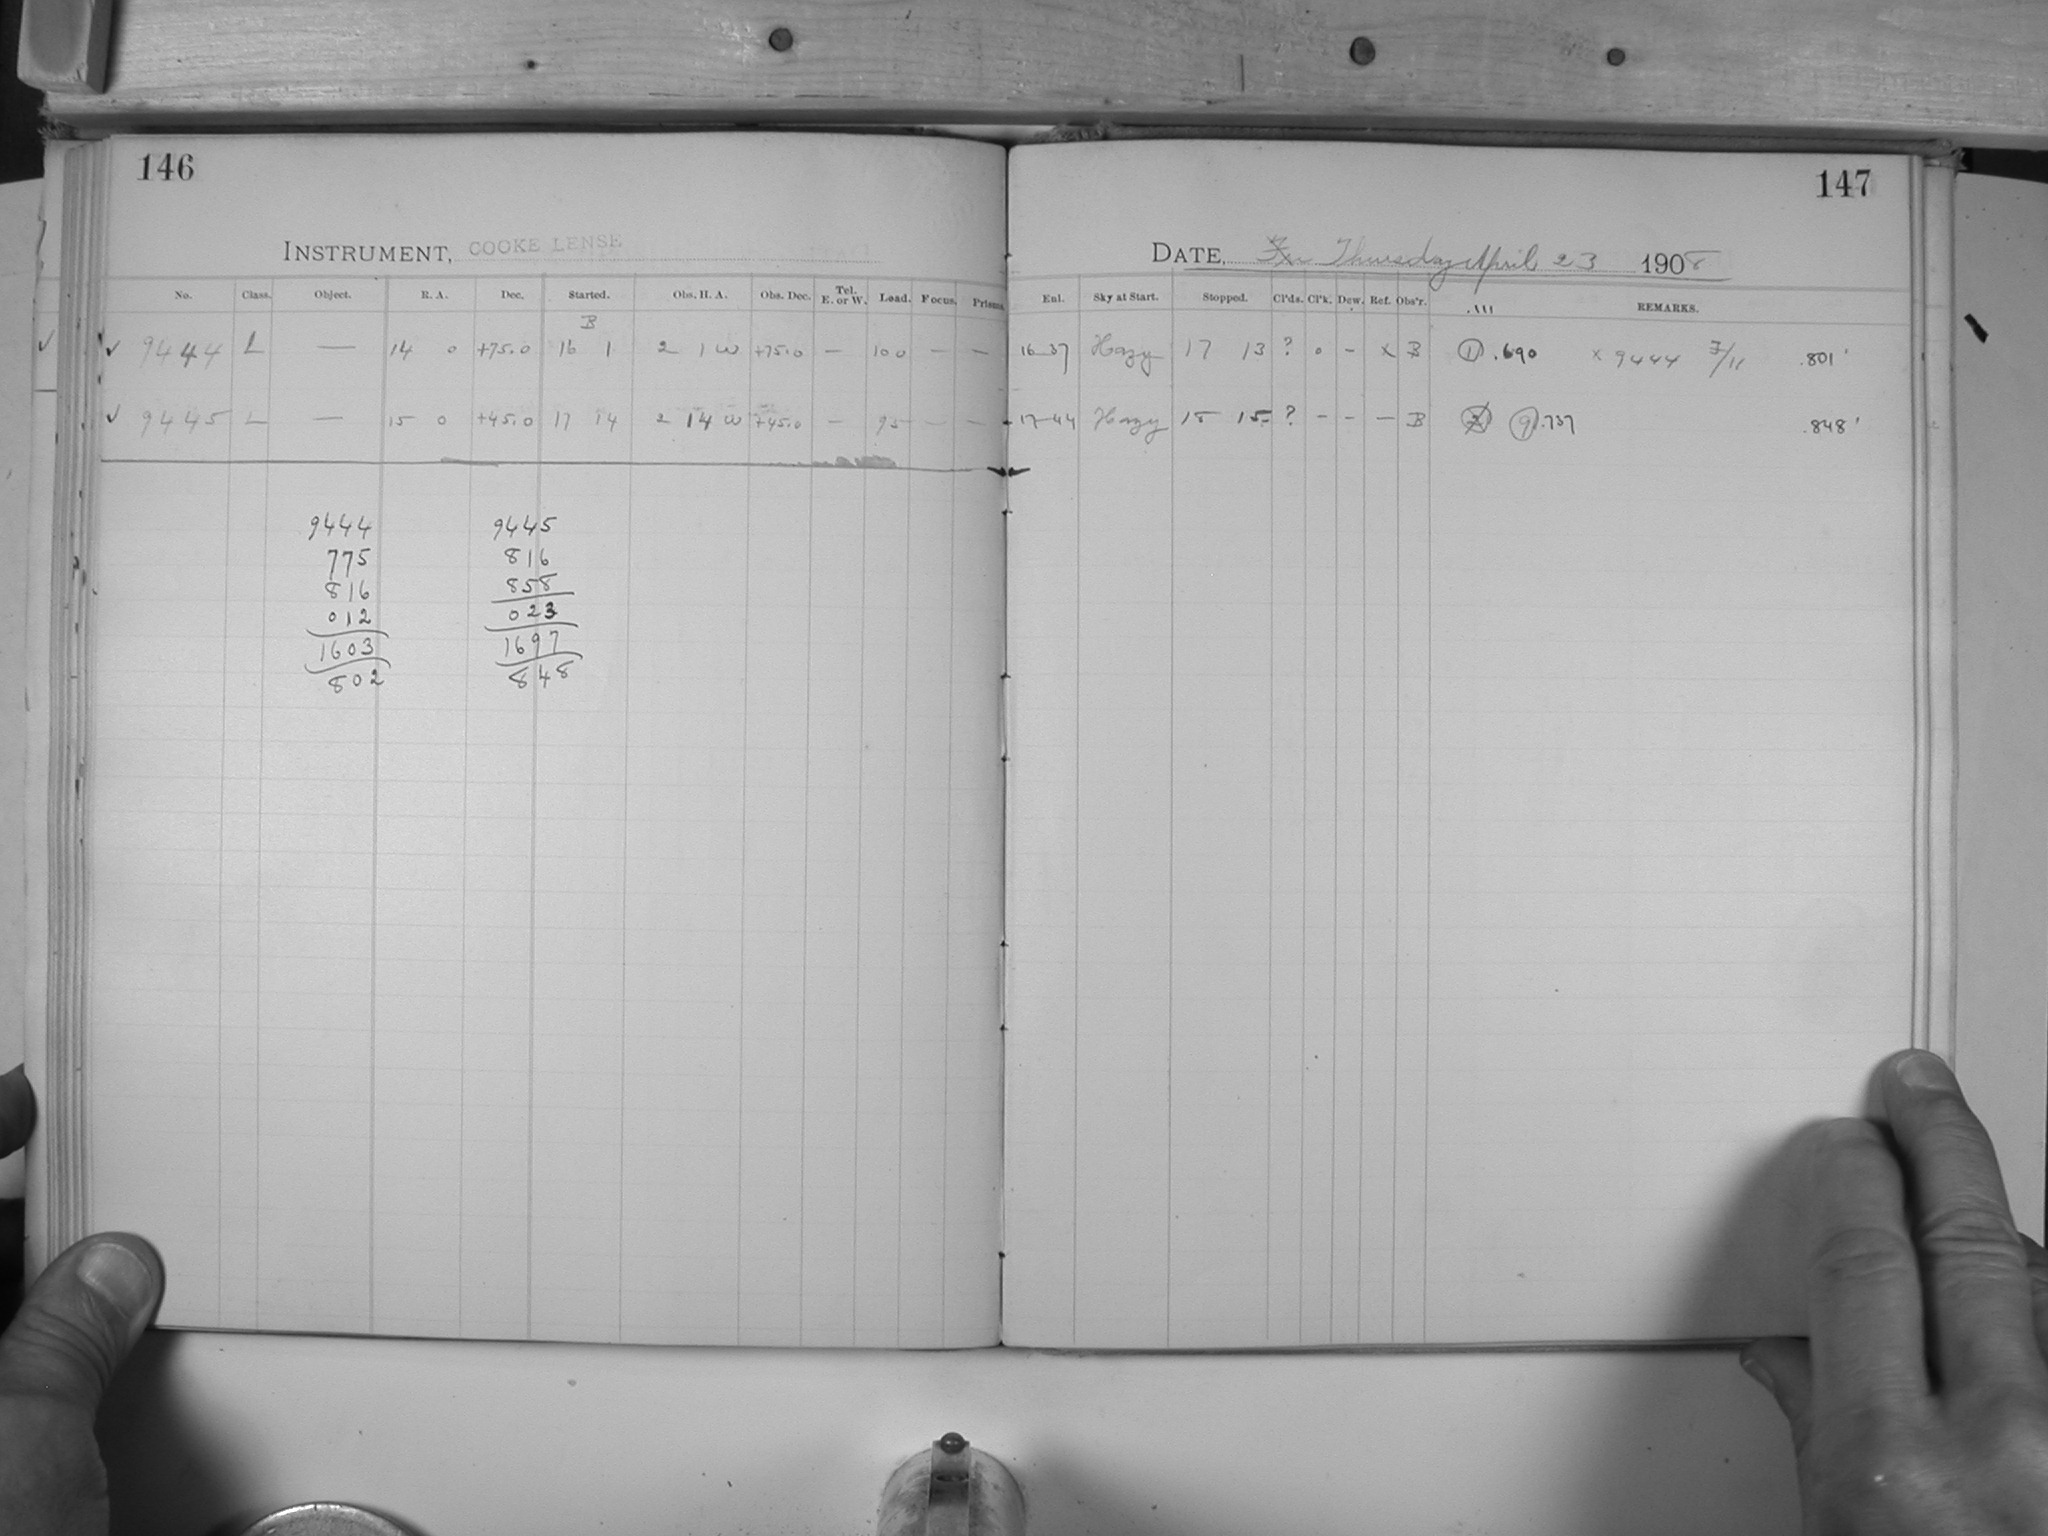 146
INSTRUMENT, COOKE LENSE
No. Class. Object. R. A. Dec. Started. Obs. H. A. Obs. Dec. Tel. E. or W. Load. Focus. Prisms.
B
✓ ✓ 9444 L — 14 0 +75.0 16 1 2 1 W +75.0 — 100 — —
✓ 9445 L — 15 0 +45.0 17 14 2 14 W +45.0 — 95 — —
9444 9445
775 816
816 858
012 023
1603 1697
802 848
147
DATE, Thursday April 23 1908
Enl. Sky at Start. Stopped. Cl'ds. Cl'k. Dew. Ref. Obs'r. REMARKS.
16-37 Hazy 17 13 ? 0 - x B 1 .690 x 9444 7/11 .801'
17-44 Hazy 18 15 ? - - - B 9 .737 .848'